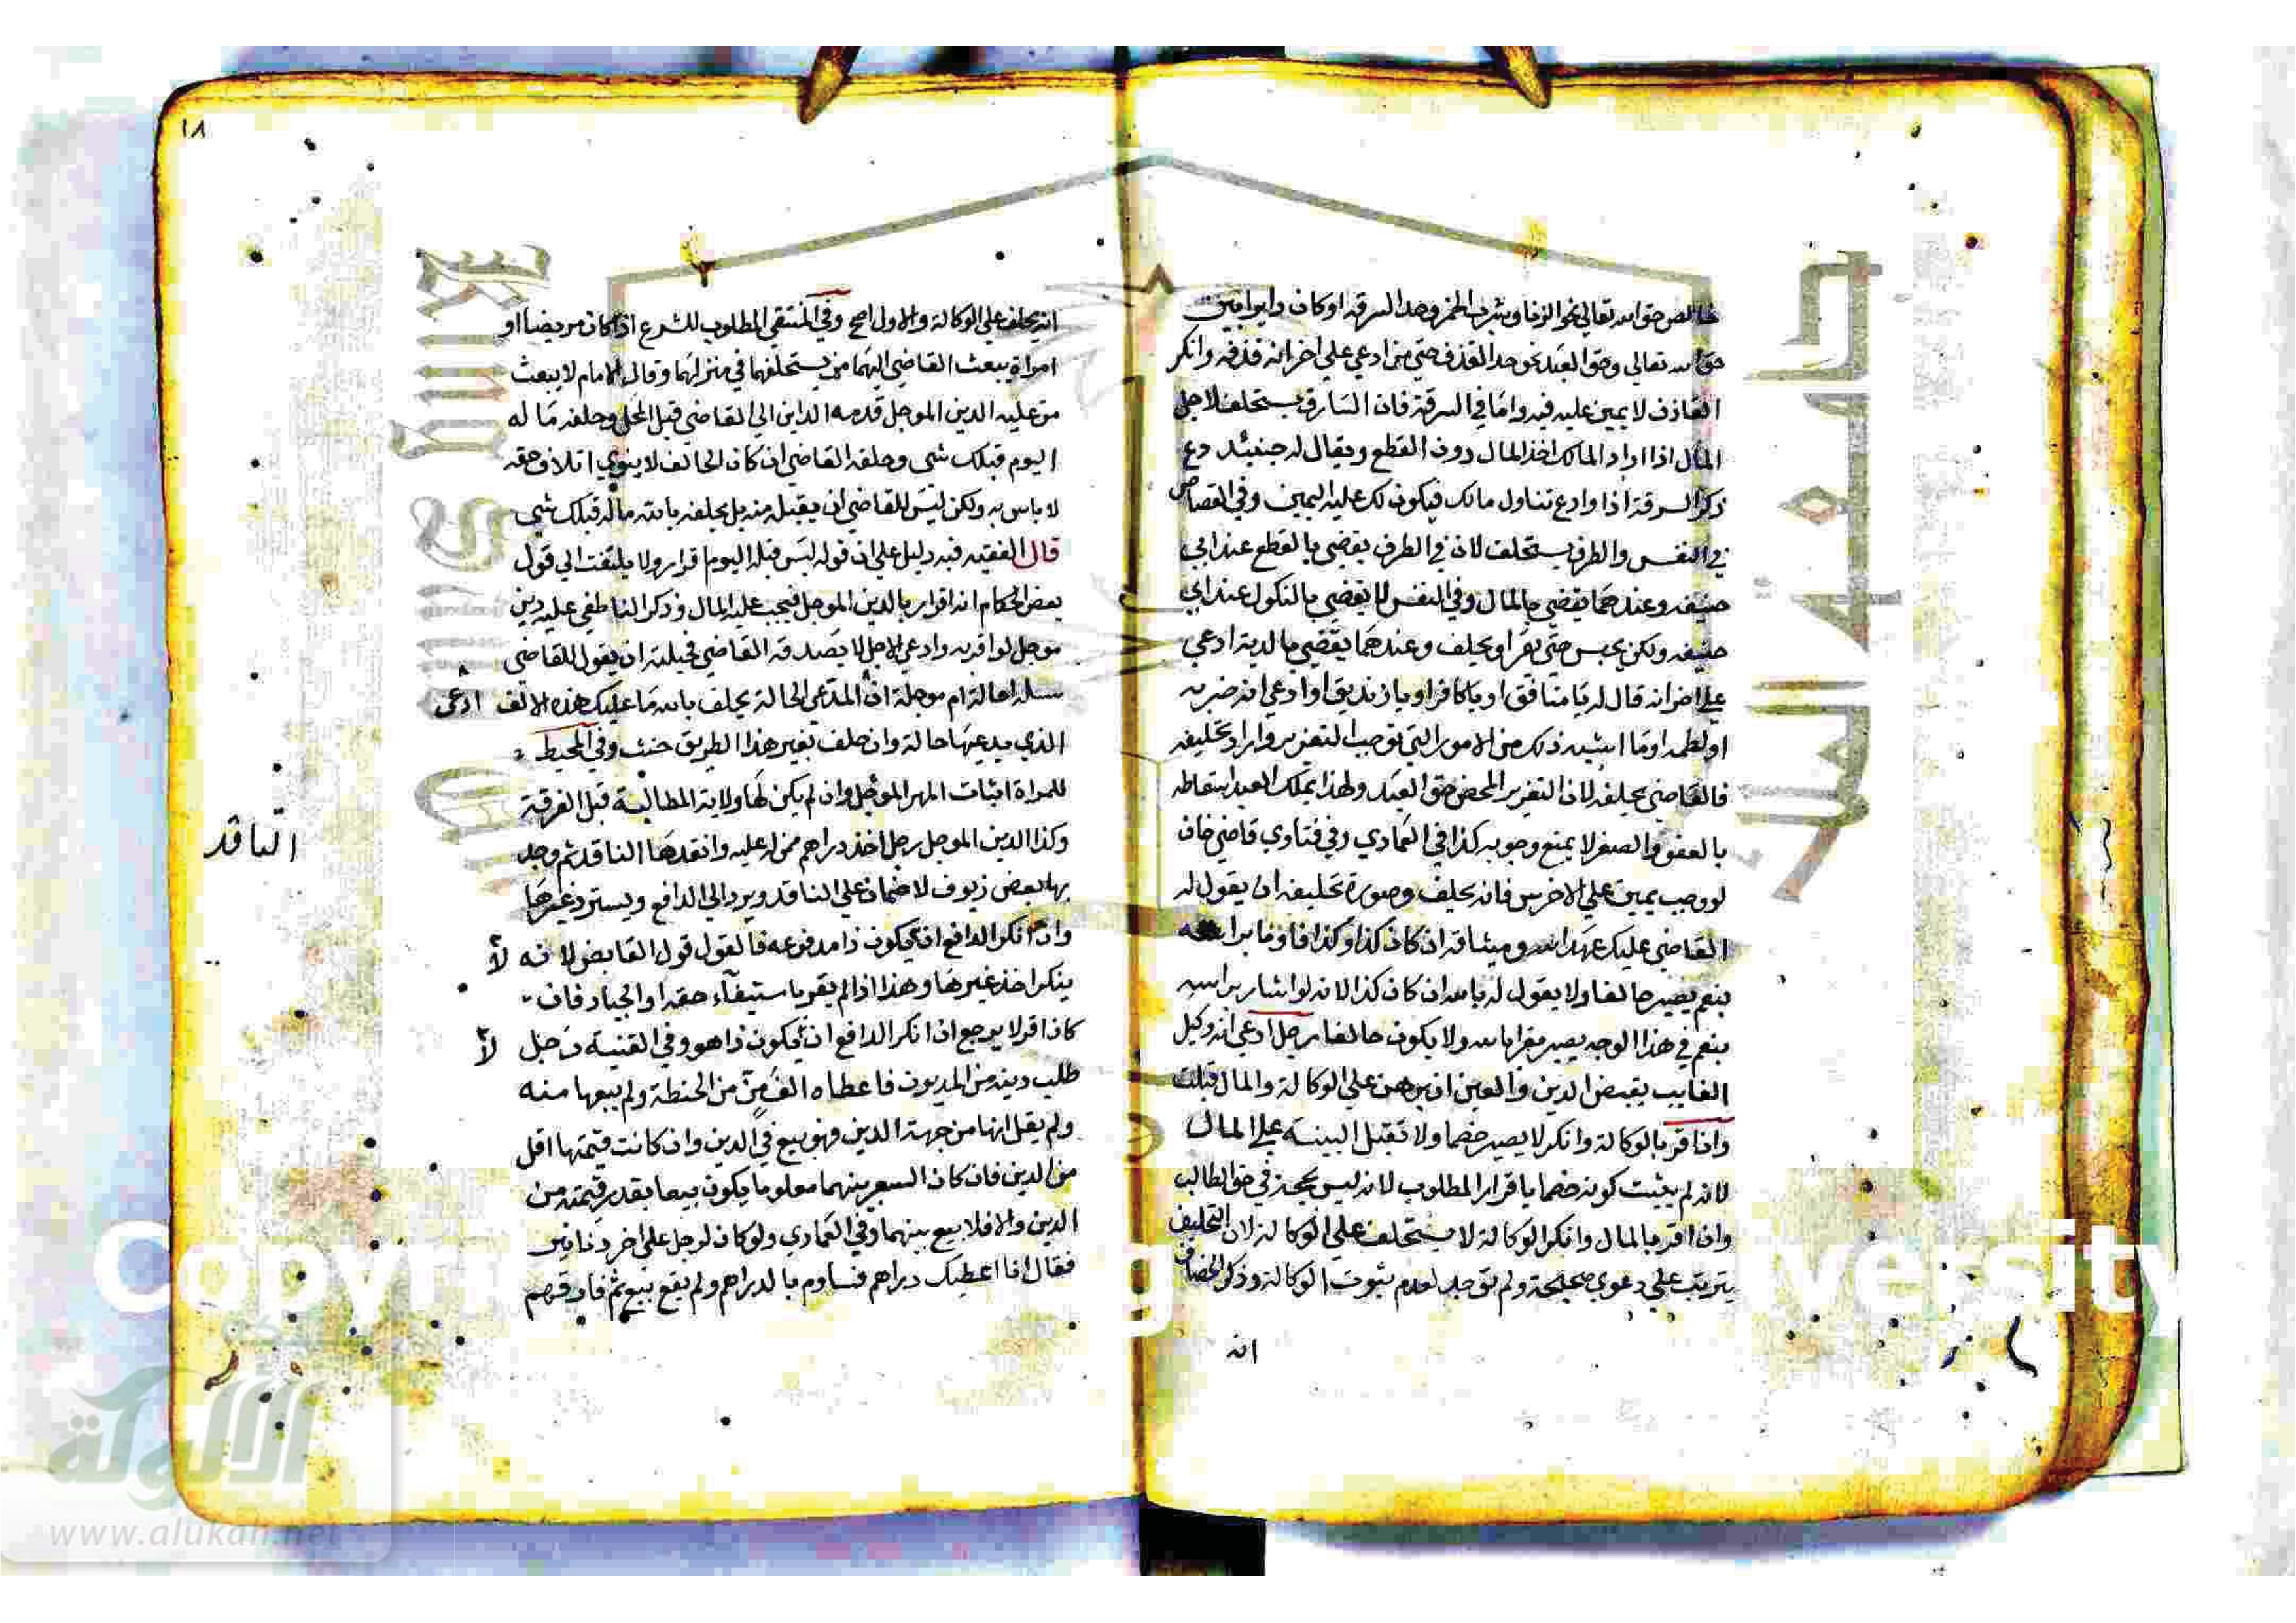 خالص حق الله تعالى نحو الزنا وشرب الخمر وحد السرقة او كان دايرا بين
حق الله تعالى وحق العبد نحو حد القذف حتى من ادعي علي اخر انه قذفه وانكر
القاذف لا يمين عليه فيه واما في السرقة فان السارق يستحلف لاجل
المال اذا اراد المالك اخذ المال دون القطع ويقال له حينئذ دع
ذكر السرقة اذا وادع تناول مالك فيكون لك عليه اليمين وفي القصاص
في النفس والطرف يستحلف لان في الطرف يقضي بالقطع عند ابي
حنيفه وعندهما يقضي بالمال وفي النفس لا يقضي بالنكول عند ابي
حنيفه ولكن يحبس حتى يقر او يحلف وعندهما يقضي بالدية ادعي
علي اخر انه قال له يا منافق او يا كافر او يا زنديق او ادعي انه ضربه
او لطمه او ما اشبه ذلك من الامور التي توجب التعزير واراد تحليفه
فالقاضي يحلفه لان التعزير المحض حق العبد ولهذا يملك العبد اسقاطه
بالعفو والصغر لا يمنع وجوبه كذا في العمادي وفي فتاوي قاضي خان
لو وجب يمين علي الاخرس فانه يحلف وصورة تحليفه ان يقول له
القاضي عليك عهد الله وميثاقه ان كان كذا وكذا فاومأ براسه
بنعم يصير حالفا ولا يقول له بالله ان كان كذا لانه لو اشار براسه
بنعم في هذا الوجه يصير مقرا بالله ولا يكون حالفا رجل ادعي انه وكيل
الغايب بقبض الدين والعين ان برهن علي الوكالة والمال قبلت
وان اقر بالوكالة وانكر لا يصير خصما ولا تقبل البينة علي المال
لانه لم يثبت كونه خصما باقرار المطلوب لانه ليس بحجة في حق الطالب
وان اقر بالمال وانكر الوكالة لا يستحلف علي الوكالة لان التحليف
يترتب علي دعوي صحيحة ولم توجد لعدم ثبوت الوكالة وذكر الخصاف
انه
١٨
انه يحلف علي الوكالة والاول اصح وفي المنتقي المطلوب للشرع اذا كان مريضا او
امراة يبعث القاضي اليهما من يستحلفهما في منزلهما وقال الامام لا يبعث
من عليه الدين الموجل قدمه الداين الي القاضي قبل المحل وحلفه ما له
اليوم قبلك شي وحلفه القاضي ان كان الحالف لا ينوي اتلاف حقه
لا باس به ولكن ليس للقاضي ان يقبله منه بل يحلفه بالله ما له قبلك شي
قال الفقيه فيه دليل علي ان قوله ليس قبله اليوم اقرار ولا يلتفت الي قول
بعض الحكام انه اقرار بالدين الموجل فيجب عليه المال وذكر الناطفي عليه دين
موجل لو اقر به وادعي الاجل لا يصدقه القاضي فحيلته ان يقول للقاضي
سله احالة ام موجلة ان المدعي الحالة يحلف بالله ما عليك هذه الالف ادعى
الذي يدعيها حالة وان حلف بغير هذا الطريق حنث وفي المحيط
للمراة اثبات المهر الموجل وان لم يكن لها ولاية المطالبة قبل الفرقة
وكذا الدين الموجل رجل اخذ دراهم ممن له عليه وانتقدها الناقد ثم وجد
الناقد
بها بعض زيوف لا ضمان علي الناقد ويرد الي الدافع ويسترد غيرها
وان انكر الدافع ان يكون ذا مدفوعه فالقول قول القابض لانه لا
ينكر اخذ غيرها وهذا اذا لم يقر باستيفاء حقه او الجياد فان
كان اقر لا يرجع ان انكر الدافع ان يكون ذا هو وفي القنية رجل لا
طلب دينه من المديون فاعطاه الف من من الحنطة ولم يبعها منه
ولم يقل انها من جهة الدين فهو بيع في الدين وان كانت قيمتها اقل
من الدين فان كان السعر بينهما معلوما يكون بيعا بقدر قيمته من
الدين والا فلا بيع بينهما وفي العمادي ولو كان لرجل علي اخر دنانير
فقال انا اعطيك دراهم فساوم بالدراهم ولم يقع بيع ثم فارقهم
الألوكة
www.alukah.net